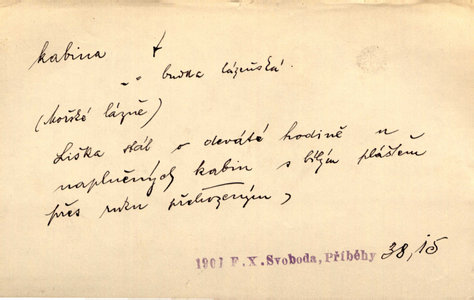 kabina
„ „ budka lázeňská.
(Mořské lázně)
Liška stál o deváté hodině u
naplněných kabin s bílým pláštěm
přes ruku přehozeným,
1907 F.X.Svoboda, Příběhy 38, 15